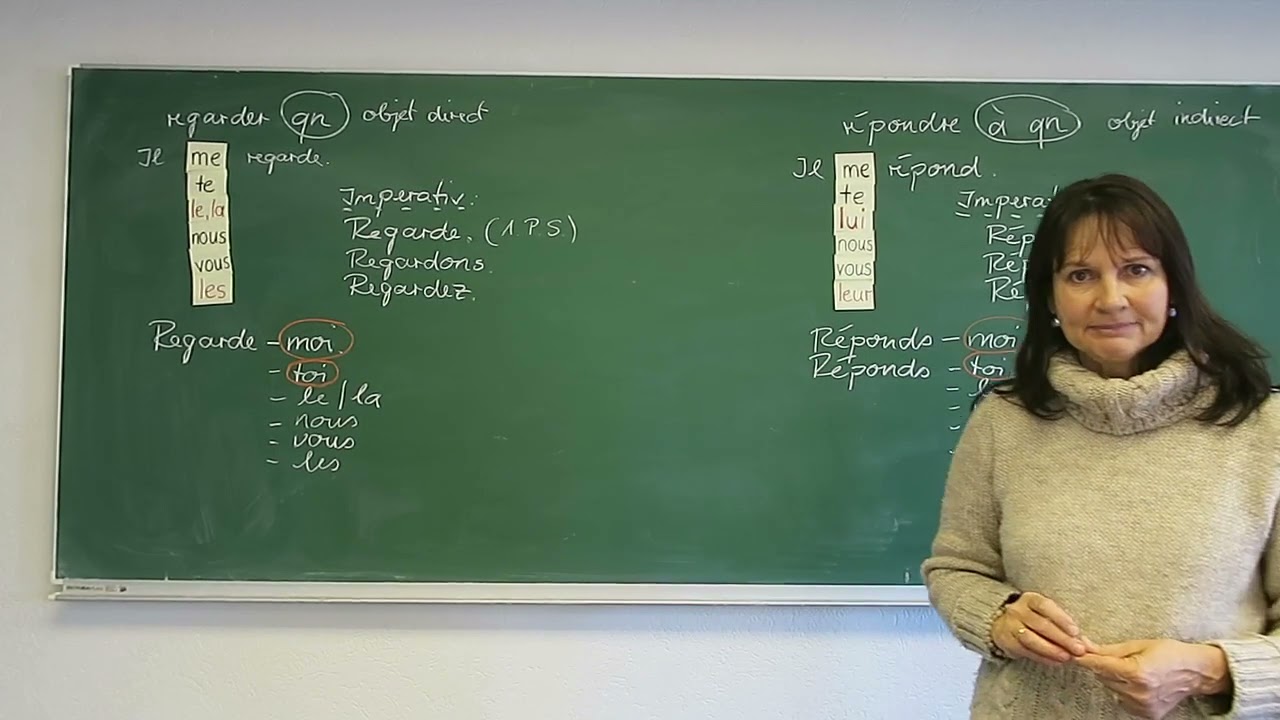 regarder qn objet direct
Il me regarde.
te
le, la
nous
vous
les
Imperativ:
Regarde. (1.P.S.)
Regardons.
Regardez.
Regarde - moi.
- toi
- le / la
- nous
- vous
- les
répondre à qn objet indirect
Il me répond.
te
lui
nous
vous
leur
Impera
Rép
Rép
Ré
Réponds - moi
Réponds - toi
- l
-
-
-